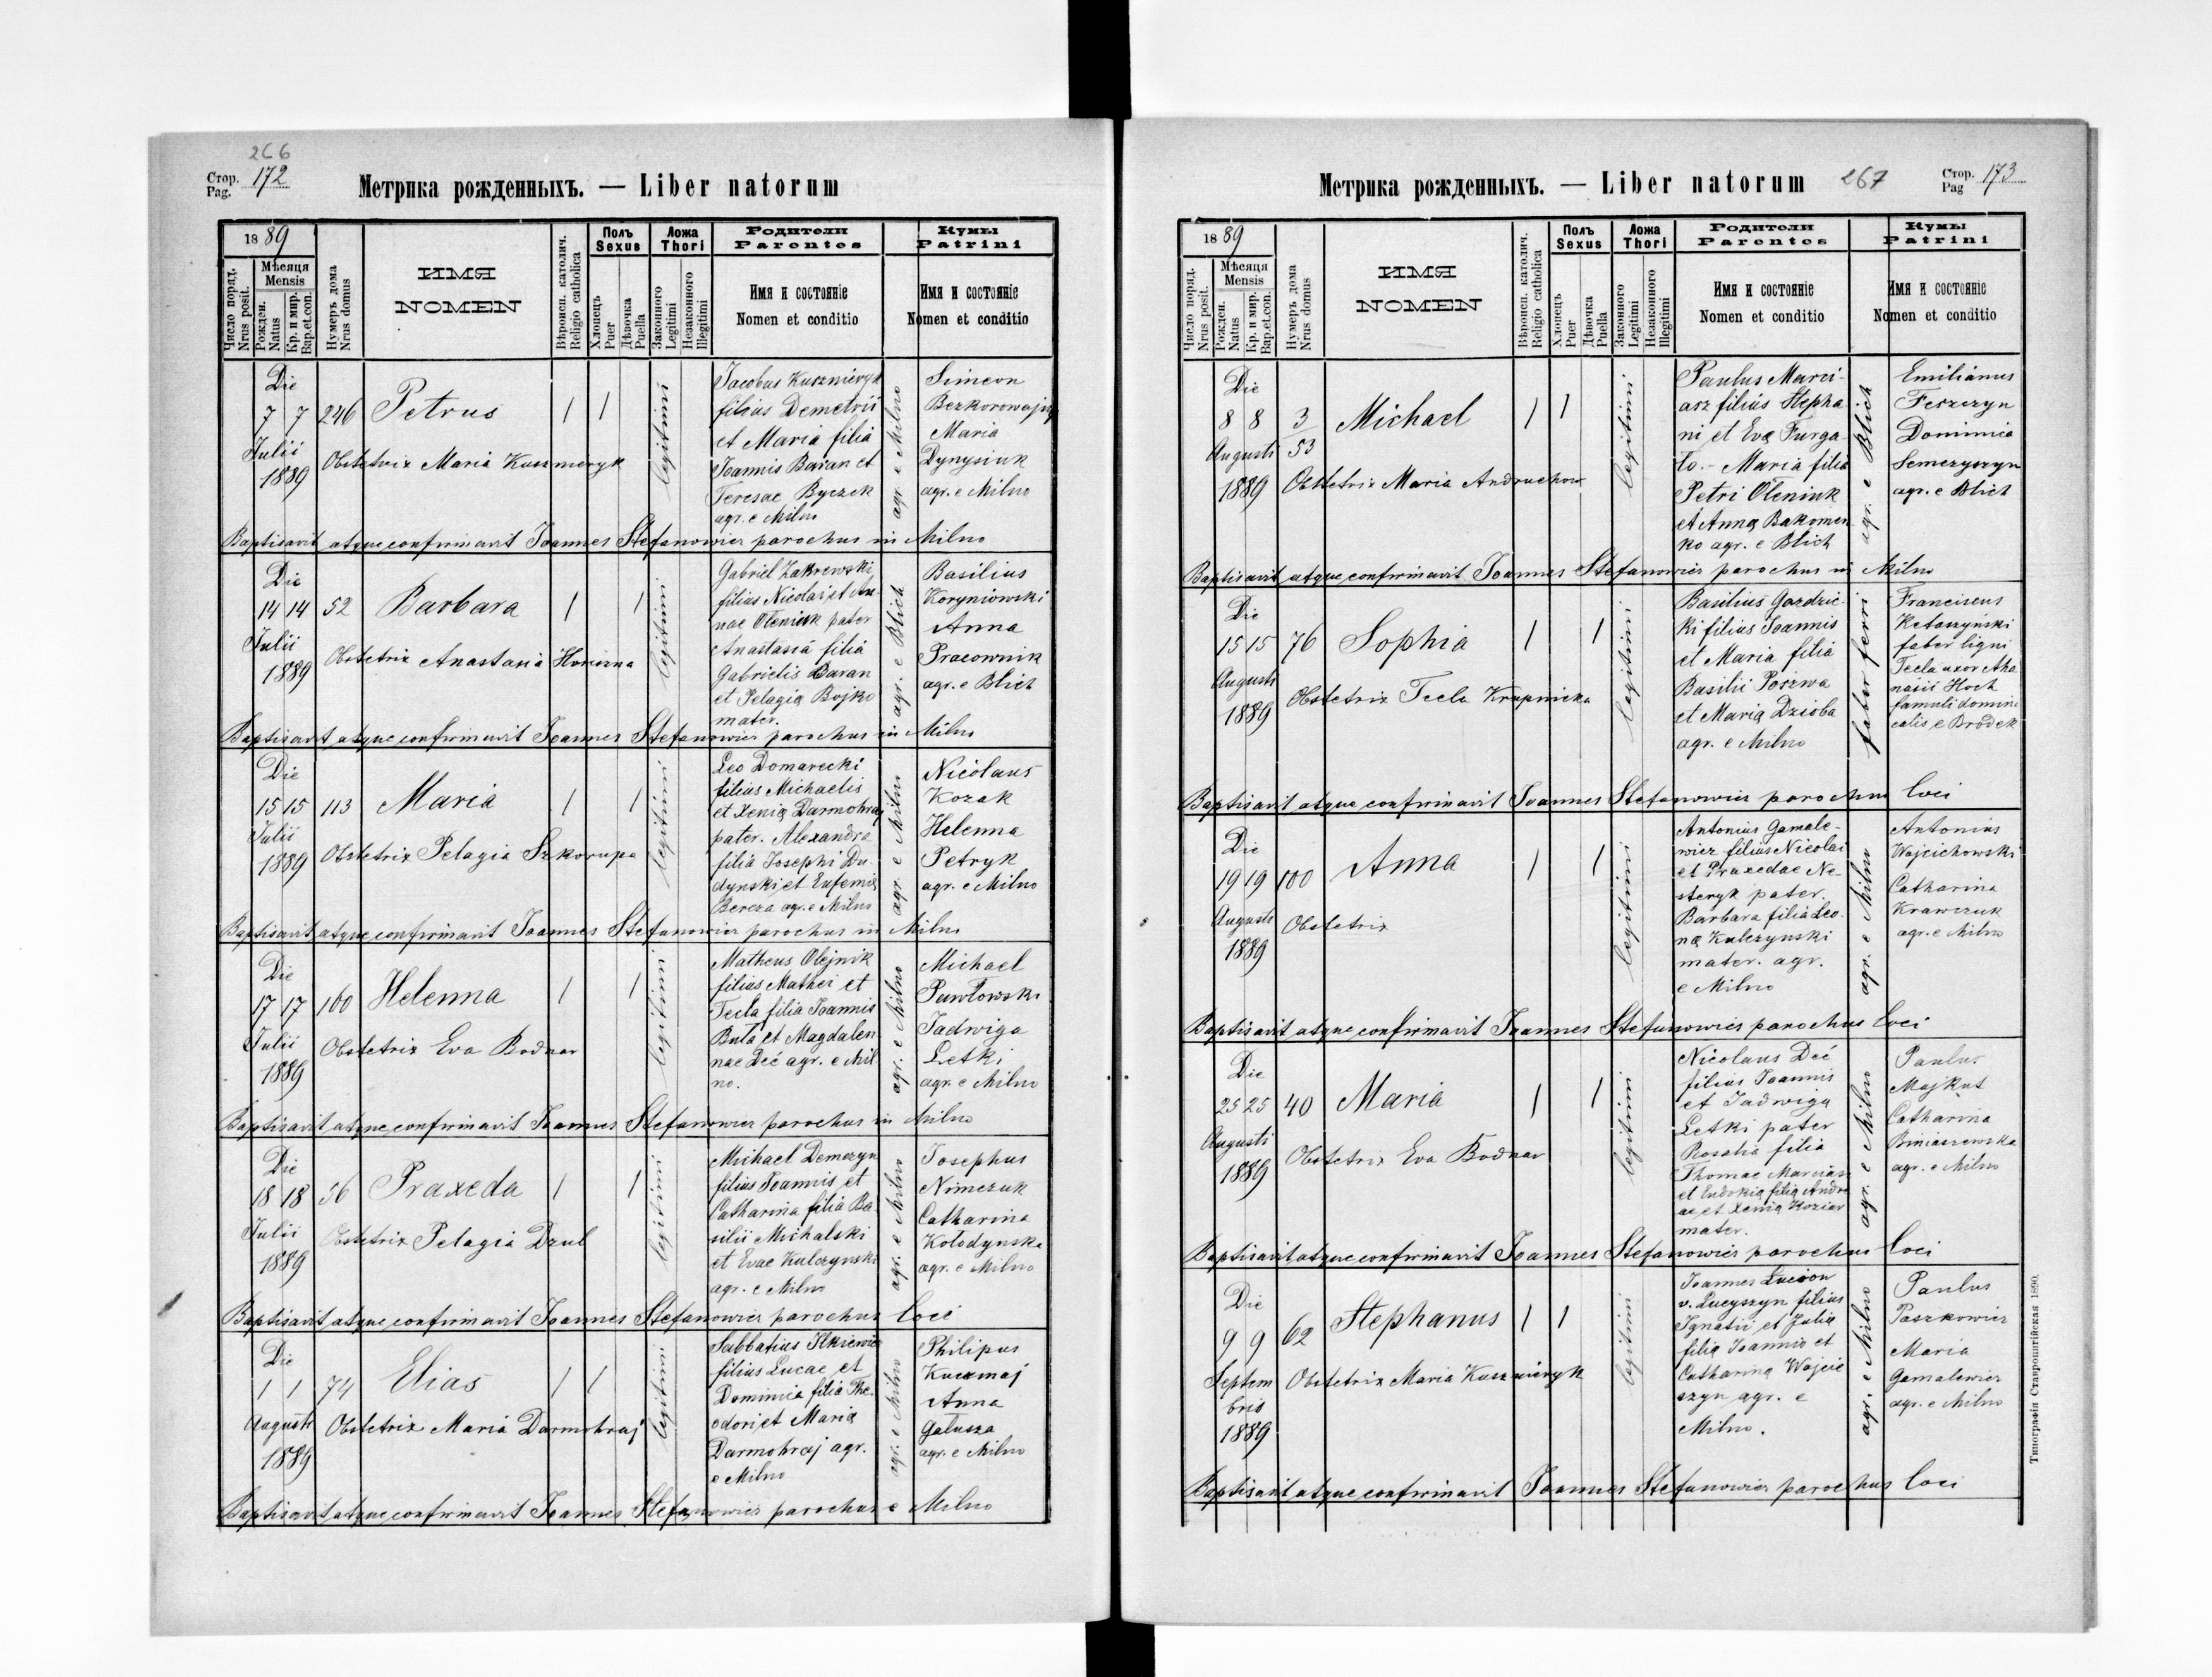 266
Стор. Pag. 172
Метрика рожденныхъ. — Liber natorum
1889
Число поряд. Nrus posit.
Мѣсяця Mensis
Рожден. Natus
Кр. и мир. Bap.et.con.
Нумеръ дома Nrus domus
ИМЯ
NOMEN
Вѣроисп. католич. Religio catholica
Полъ Sexus
Хлопецъ Puer
Дѣвочка Puella
Ложа Thori
Законного Legitimi
Незаконного Illegitimi
Родители
Parentes
Имя и состояніе
Nomen et conditio
Кумы
Patrini
Имя и состояніе
Nomen et conditio
Die
7 7 246 Petrus 1 1
Julii
1889
Obstetrix Maria Kuszneryk
legitimi
Jacobus Kuszniryk
filius Demetrii
et Maria filia
Joannis Baran et
Teresae Byczek
agr. e Milno
agr. e Milno
Simeon
Bezkorowajny
Maria
Dynysiuk
agr. e Milno
Baptisavit atque confirmavit Joannes Stefanowicz parochus in Milno
Die
14 14 52 Barbara 1 1
Julii
1889
Obstetrix Anastasia
legitimi
Gabriel Zakrewski
filius Nicolai et An-
nae Oleniuk pater
Anastasia filia
Gabrielis Baran
et Pelagia Bojko
mater.
agr. e Blich
Basilius
Koryniowski
Anna
Pracownik
agr. e Blich
Baptisavit atque confirmavit Joannes Stefanowicz parochus in Milno
Die
15 15 113 Maria 1 1
Julii
1889
Obstetrix Pelagia Szkorupa
legitimi
Leo Domarecki
filius Michaelis
et Xenia Darmohraj
pater. Alexandra
filia Josephi Du-
dynski et Eufemia
Bereza agr. e Milno
agr. e Milno
Nicolaus
Kozak
Helenna
Petryk
agr. e Milno
Baptisavit atque confirmavit Joannes Stefanowicz parochus in Milno
Die
17 17 100 Helenna 1 1
Julii
1889
Obstetrix Eva Bodnar
legitimi
Matheus Olejnik
filius Mathei et
Tecla filia Joannis
Buta et Magdalen
nae Deć agr. e Mil
no.
agr. e Milno
Michael
Pawłowski
Jadwiga
Letki
agr. e Milno
Baptisavit atque confirmavit Joannes Stefanowicz parochus in Milno
Die
18 18 56 Praxeda 1 1
Julii
1889
Obstetrix Pelagia Dzul
legitimi
Michael Demczyn
filius Joannis et
Catharina filia Ba
silii Michalski
et Evae Kulczynski
agr. e Milno
agr. e Milno
Josephus
Nimczuk
Catharina
Kołodynska
agr. e Milno
Baptisavit atque confirmavit Joannes Stefanowicz parochus loci
Die
1 1 74 Elias 1 1
Augusti
1889
Obstetrix Maria Darmohraj
legitimi
Sabbatius Ilkiewicz
filius Lucae et
Dominica filia The-
odori et Maria
Darmohraj agr.
e Milno
agr. e Milno
Philipus
Kuczmaj
Anna
Gałusza
agr. e Milno
Baptisavit atque confirmavit Joannes Stefanowicz parochus e Milno
Метрика рожденныхъ. — Liber natorum
267
Стор. Pag 173
1889
Число поряд. Nrus posit.
Мѣсяця Mensis
Рожден. Natus
Кр. и мир. Bap.et.con.
Нумеръ дома Nrus domus
ИМЯ
NOMEN
Вѣроисп. католич. Religio catholica
Полъ Sexus
Хлопецъ Puer
Дѣвочка Puella
Ложа Thori
Законного Legitimi
Незаконного Illegitimi
Родители
Parentes
Имя и состояніе
Nomen et conditio
Кумы
Patrini
Имя и состояніе
Nomen et conditio
Die
8 8 3 Michael 1 1
Augusti 53
1889
Obstetrix Maria Andruchow
legitimi
Paulus Marci-
asz filius Stepha
ni et Eva Furga-
ło.- Maria filia
Petri Oleniuk
et Anna Bakomen
ko agr. e Blich
agr. e Blich
Emilianus
Feszczyn
Dominica
Semczyszyn
agr. e Blich
Baptisavit atque confirmavit Joannes Stefanowicz parochus in Milno
Die
15 15 76 Sophia 1 1
Augusti
1889
Obstetrix Tecla Krupnicka
legitimi
Basilius Gozdzic-
ki filius Joannis
et Maria filia
Basilii Poszwa
et Maria Dzioba
agr. e Milno
faber ferri
Franciscus
Ketoszynski
faber ligni
Tecla uxor Atha
nasii Hoch
famuli domini
calis e Brodek
Baptisavit atque confirmavit Joannes Stefanowicz parochus loci
Die
19 19 100 Anna 1 1
Augusti
1889
Obstetrix
legitimi
Antonius Gamale-
wicz filius Nicolai
et Praxedae Ne-
steryk pater.
Barbara filia Leo-
na Kulczynski
mater. agr.
e Milno
agr. e Milno
Antonius
Wojcichowski
Catharina
Krawczuk
agr. e Milno
Baptisavit atque confirmavit Joannes Stefanowicz parochus loci
Die
25 25 40 Maria 1 1
Augusti
1889
Obstetrix Eva Bodnar
legitimi
Nicolaus Deć
filius Joannis
et Jadwiga
Letki pater
Rosalia filia
Thomae Marcias
et Eudokia filia Andre
ae et Xenia Koziar
mater.
agr. e Milno
Paulus
Majkut
Catharina
Biniaszewska
agr. e Milno
Baptisavit atque confirmavit Joannes Stefanowicz parochus loci
Die
9 9 62 Stephanus 1 1
Septem
bris
1889
Obstetrix Maria Kuszniryk
legitimi
Joannes Lucison
v. Lucyszyn filius
Ignatii et Julia
filia Joannis et
Catharina Wojcie
szyn agr. e
Milno.
agr. e Milno
Paulus
Paszkowicz
Maria
Gamalewicz
agr. e Milno
Baptisavit atque confirmavit Joannes Stefanowicz parochus loci
Типографія Ставропигійская 1890.